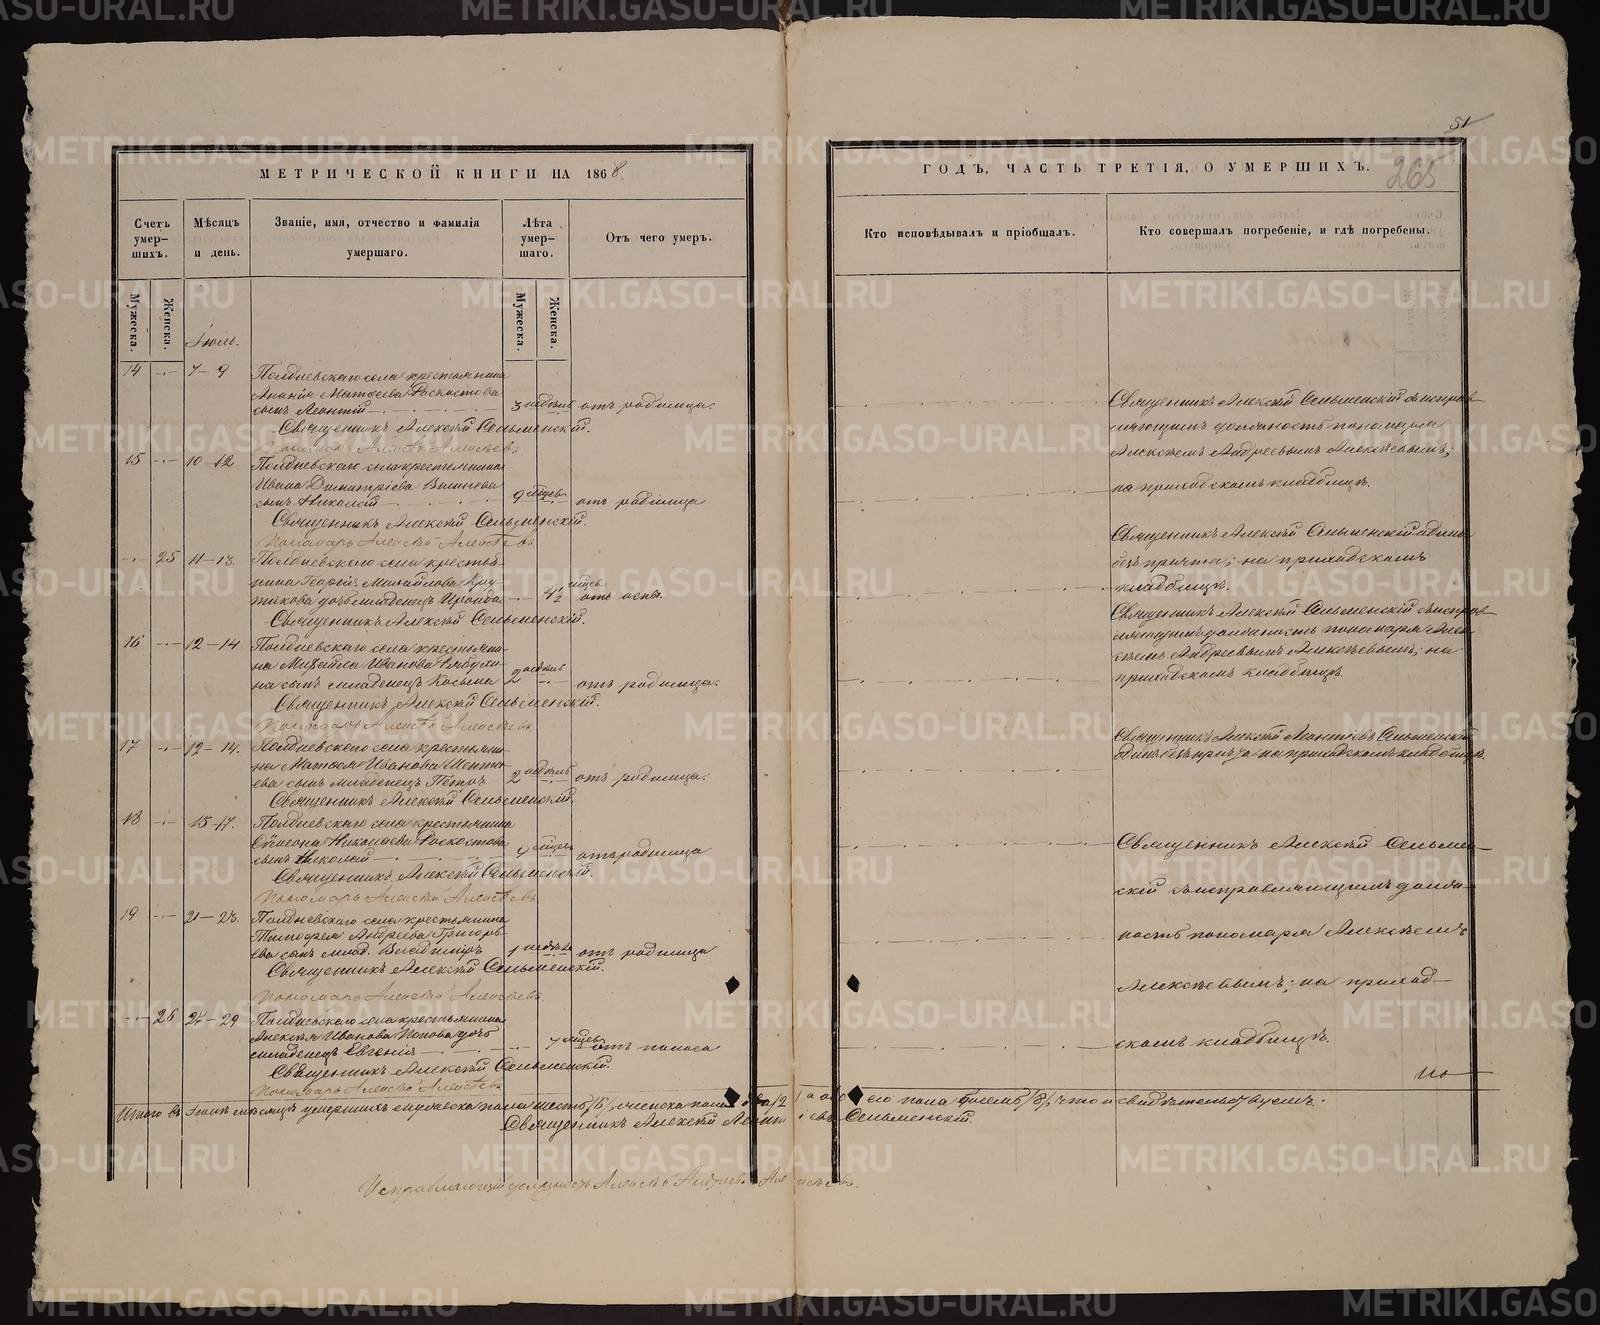 51
265
МЕТРИЧЕСКОЙ КНИГИ НА 1868.
Счетъ умер-шихъ.
Мѣсяцъ и день.
Званіе, имя, отчество и фамилія умершаго.
Лѣта умер-шаго.
Отъ чего умеръ.
Мужеска.
Женска.
Мужеска.
Женска.
Іюль.
14 7-9 Полдневскаго села крестьянина
Ананія Матѳеева
сынъ Леонтій 3 недѣль отъ родимца.
Священникъ Алексѣй Сельменскій.
Пономарь Алексѣй Алексѣевъ
15 10-12 Полдневскаго села крестьянина
Ивана Димитріева
сынъ Николай 9 мѣсяц. отъ родимца
Священникъ Алексѣй Сельменскій.
Пономарь Алексѣй Алексѣевъ
25 11-13 Полдневскаго села крестья-
нина Георгія Михайлова Кру-
тикова дочь младенецъ Ираида 4½ мѣсяц. отъ оспы.
Священникъ Алексѣй Сельменскій.
16 12-14 Полдневскаго села крестьяни-
на Михаила Иванова Рябухи-
на сынъ младенецъ Косьма 2 недѣль отъ родимца.
Священникъ Алексѣй Сельменскій.
Пономарь Алексѣй Алексѣевъ
17 12-14. Полдневскаго села крестьяни-
на Матѳея Иванова
сынъ младенецъ Петръ 2 недѣль отъ родимца.
Священникъ Алексѣй Сельменскій.
18 15-17. Полдневскаго села крестьянина
Сѵмеона Николаева
сынъ Николай мѣсяц. отъ родимца
Священникъ Алексѣй Сельменскій.
Пономарь Алексѣй Алексѣевъ
19 21-23. Полдневскаго села крестьянина
Тимоѳея Андреева Григорь-
ева сынъ млад. Владиміръ 1 отъ родимца
Священникъ Алексѣй Сельменскій.
Пономарь Алексѣй Алексѣевъ
26 27-29 Полдневскаго села крестьянина
Алексѣя Иванова Попова дочь
младенецъ Евгенія 7 мѣсяц. отъ поноса
Священникъ Алексѣй Сельменскій.
Пономарь Алексѣй Алексѣевъ
Итого въ Іюлѣ мѣсяцѣ умершихъ мужеска пола шесть /6/, женска пола два /2/ а обоего пола восемь /8/, что и свидѣтельствуемъ.
Священникъ Алексѣй Леонтіевъ Сельменскій.
Исправляющій должность Алексѣй Андреевъ Алексѣевъ.
ГОДЪ, ЧАСТЬ ТРЕТІЯ, О УМЕРШИХЪ.
Кто исповѣдывалъ и пріобщалъ.
Кто совершалъ погребеніе, и гдѣ погребены.
Священникъ Алексѣй Сельменскій съ исправ-
ляющимъ должность пономаря
Алексѣемъ Андреевымъ Алексѣевымъ;
на приходскомъ кладбищѣ.
Священникъ Алексѣй Сельменскій одинъ
безъ причта; на приходскомъ
кладбищѣ.
Священникъ Алексѣй Сельменскій съ исправ-
ляющимъ должность пономаря Алек-
сѣемъ Андреевымъ Алексѣевымъ; на
приходскомъ кладбищѣ.
Священникъ Алексѣй Леонтіевъ Сельменскій
одинъ безъ причта на приходскомъ кладбищѣ.
Священникъ Алексѣй Сельмен-
скій съ исправляющимъ долж-
ность пономаря Алексѣемъ
Алексѣевымъ; на приход-
скомъ кладбищѣ.
METRIKI.GASO-URAL.RU